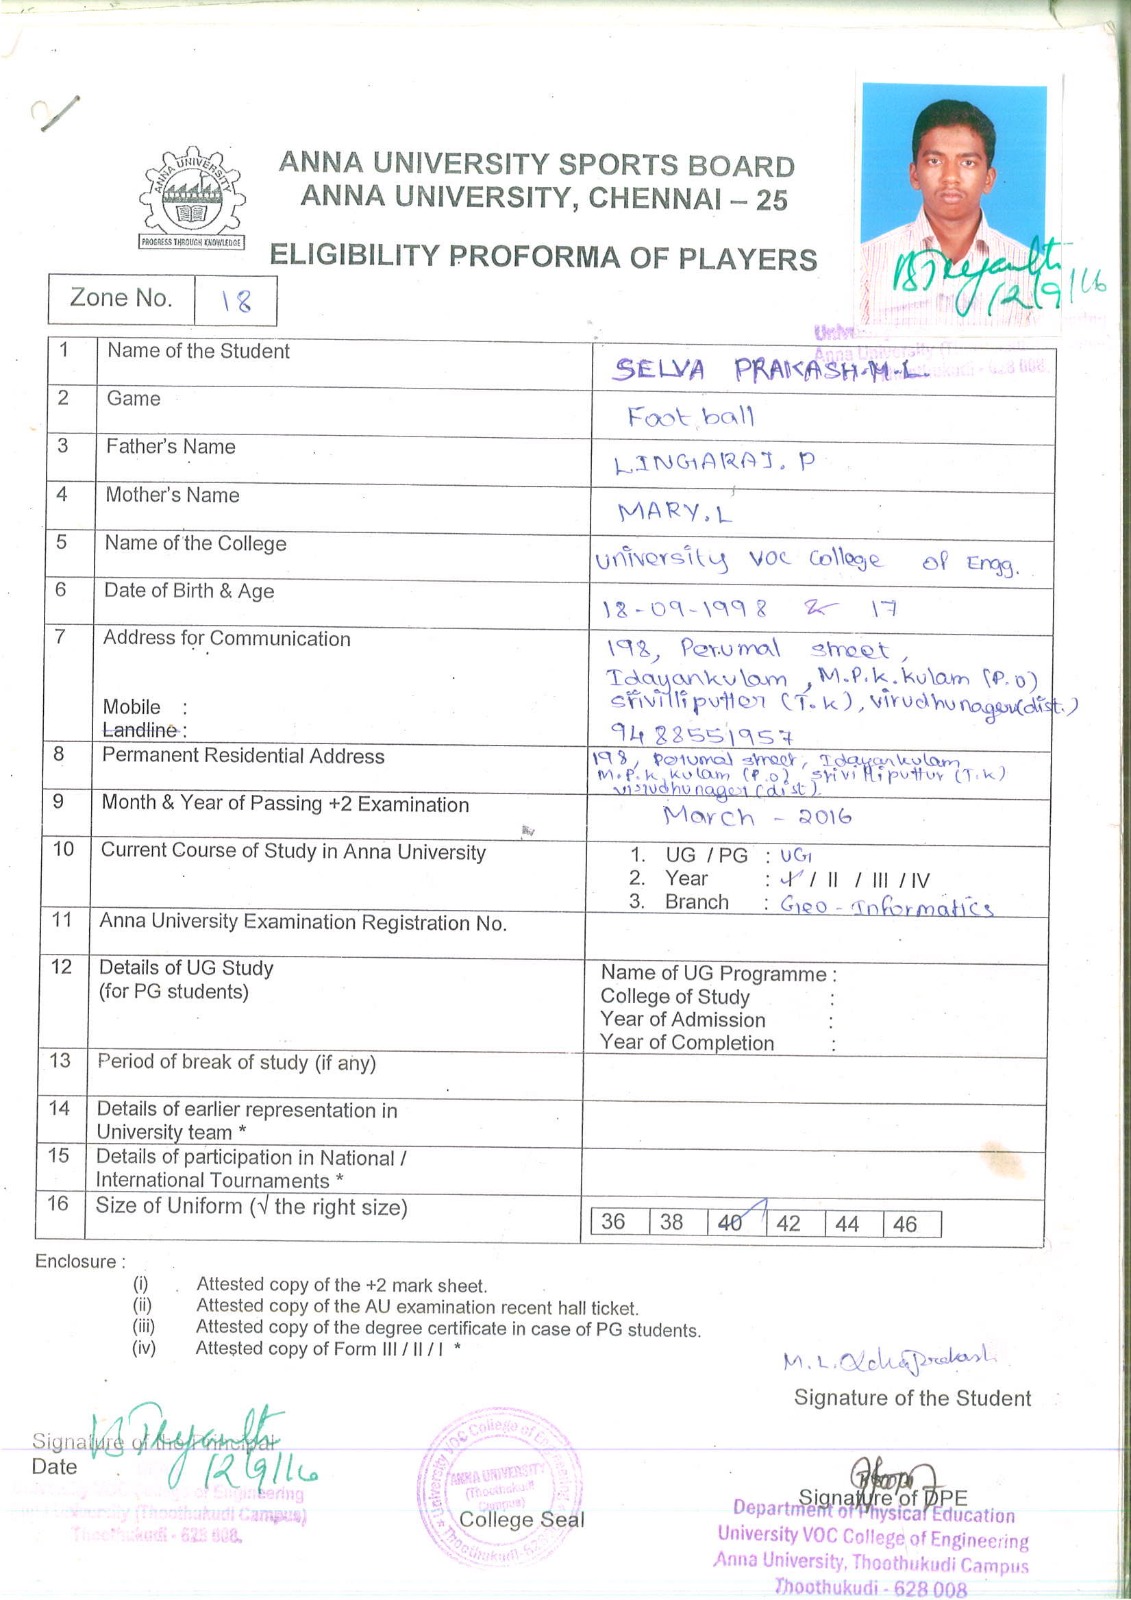 ANNA UNIVERSITY
PROGRESS THROUGH KNOWLEDGE
ANNA UNIVERSITY SPORTS BOARD
ANNA UNIVERSITY, CHENNAI – 25
ELIGIBILITY PROFORMA OF PLAYERS
12/9/16
Zone No. 18
Anna University
Thoothukudi - 628 008.
1 Name of the Student SELVA PRAKASH.M.L.
2 Game Foot ball
3 Father's Name LINGARAJ. P
4 Mother's Name MARY. L
5 Name of the College University VOC College of Engg.
6 Date of Birth & Age 18-09-1998 & 17
7 Address for Communication 198, Perumal street,
Idayankulam, M.P.K. Kulam (P.O)
Mobile : Srivilliputter (T.K), Virudhunager(dist.)
Landline : 9488551957
8 Permanent Residential Address 198, Perumal street, Idayankulam
M.P.K Kulam (P.O), Srivilliputtur (T.K)
Virudhunager(dist).
9 Month & Year of Passing +2 Examination March - 2016
10 Current Course of Study in Anna University 1. UG / PG : UG
2. Year : I / II / III / IV
3. Branch : Geo - Informatics
11 Anna University Examination Registration No.
12 Details of UG Study Name of UG Programme :
(for PG students) College of Study :
Year of Admission :
Year of Completion :
13 Period of break of study (if any)
14 Details of earlier representation in
University team *
15 Details of participation in National /
International Tournaments *
16 Size of Uniform (√ the right size) 36 38 40 42 44 46
Enclosure :
(i) Attested copy of the +2 mark sheet.
(ii) Attested copy of the AU examination recent hall ticket.
(iii) Attested copy of the degree certificate in case of PG students.
(iv) Attested copy of Form III / II / I *
M. L. Prakash
Signature of the Student
Signature of the Principal
Date 12/9/16
of Engineering
University (Thoothukudi Campus)
Thoothukudi - 628 008.
University VOC College of Engineering
ANNA UNIVERSITY
(Thoothukudi
Campus)
College Seal
Signature of DPE
Department of Physical Education
University VOC College of Engineering
Anna University, Thoothukudi Campus
Thoothukudi - 628 008